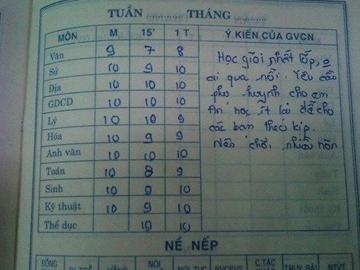 TUẦN ........ THÁNG ........
MÔN M 15' 1 T Ý KIẾN CỦA GVCN
Văn 9 7 8
Sử 10 9 10
Địa 10 10 10
GDCD 10 10 10
Lý 10 10 9
Hóa 10 9 9
Anh văn 10 10 10
Toán 10 8 9
Sinh 10 9 10
Kỹ thuật 10 9 10
Thể dục 10 10
Học giỏi nhất lớp, o
ai qua nổi. Yêu cầu
phụ huynh cho em
ăn học ít lại để cho
các bạn theo kịp.
Nên chơi nhiều hơn
NỀ NẾP